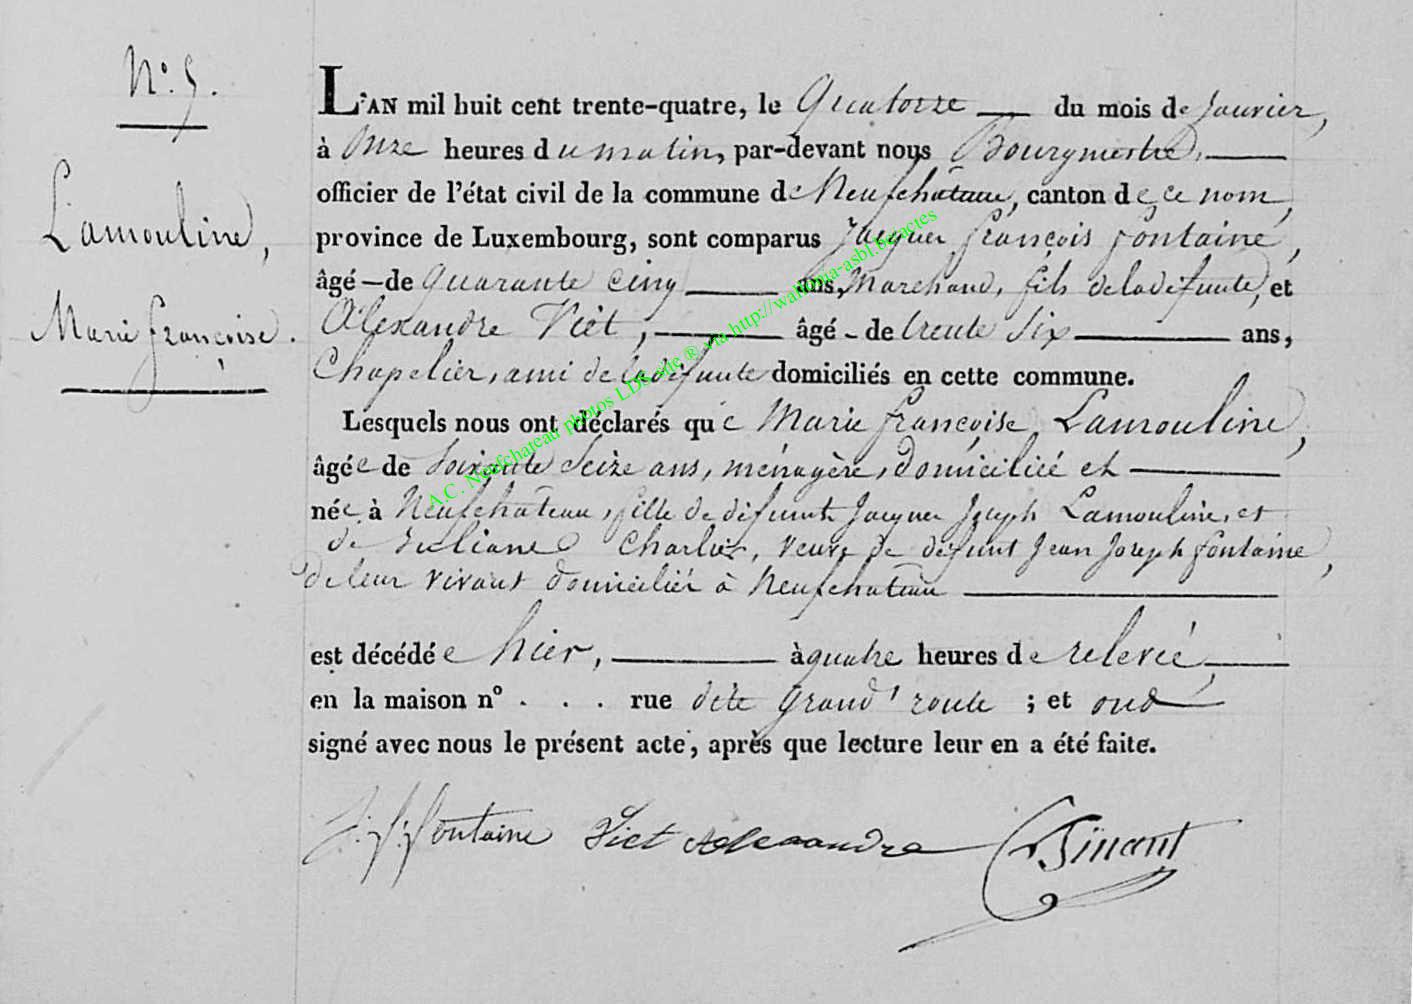 N.° 5.
Lamouline,
Marie françoise.
L'AN mil huit cent trente-quatre, le Quatorze du mois de Janvier,
à Onze heures du matin, par-devant nous Bourgmestre,
officier de l'état civil de la commune de Neufchâteau, canton de ce nom,
province de Luxembourg, sont comparus Jacques françois fontaine,
âgé de quarante cinq ans, Marchand, fils de la défunte, et
Alexandre Viet, âgé de trente six ans,
Chapelier, ami de la défunte domiciliés en cette commune.
Lesquels nous ont déclarés que Marie françoise Lamouline,
âgée de Soixante Seize ans, ménagère, domiciliée et
née à Neufchâteau, fille de défunts Jacques Joseph Lamouline, et
de Juliane Charlier, veuve de défunt Jean Joseph fontaine,
de leur vivant domicilié à Neufchateau
est décédée hier, à quatre heures de relevée,
en la maison n° . . . rue dite grand' route ; et ont
signé avec nous le présent acte, après que lecture leur en a été faite.
J. f. fontaine Viet Alexandre
A.C. Neufchateau photos LDS site ® via http://wallonia-asbl.be/actes